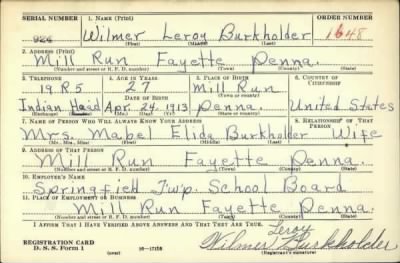 SERIAL NUMBER 1. NAME (Print) ORDER NUMBER
926 Wilmer Leroy Burkholder 1648
(First) (Middle) (Last)
2. ADDRESS (Print)
Mill Run Fayette Penna.
(Number and street or R. F. D. number) (Town) (County) (State)
3. TELEPHONE 4. AGE IN YEARS 5. PLACE OF BIRTH 6. COUNTRY OF CITIZENSHIP
19 R 5 27 Mill Run
(Town or county)
DATE OF BIRTH
Indian Head Apr. 24, 1913 Penna. United States
(Exchange) (Number) (Mo.) (Day) (Yr.) (State or country)
7. NAME OF PERSON WHO WILL ALWAYS KNOW YOUR ADDRESS 8. RELATIONSHIP OF THAT PERSON
Mrs. Mabel Elida Burkholder Wife
(Mr., Mrs., Miss) (First) (Middle) (Last)
9. ADDRESS OF THAT PERSON
Mill Run Fayette Penna.
(Number and street or R. F. D. number) (Town) (County) (State)
10. EMPLOYER'S NAME
Springfield Twp. School Board
11. PLACE OF EMPLOYMENT OR BUSINESS
Mill Run Fayette Penna.
(Number and street or R. F. D. number) (Town) (County) (State)
I AFFIRM THAT I HAVE VERIFIED ABOVE ANSWERS AND THAT THEY ARE TRUE.
Leroy
REGISTRATION CARD Wilmer Burkholder
D. S. S. Form 1 (over) 16—17105 (Registrant's signature)